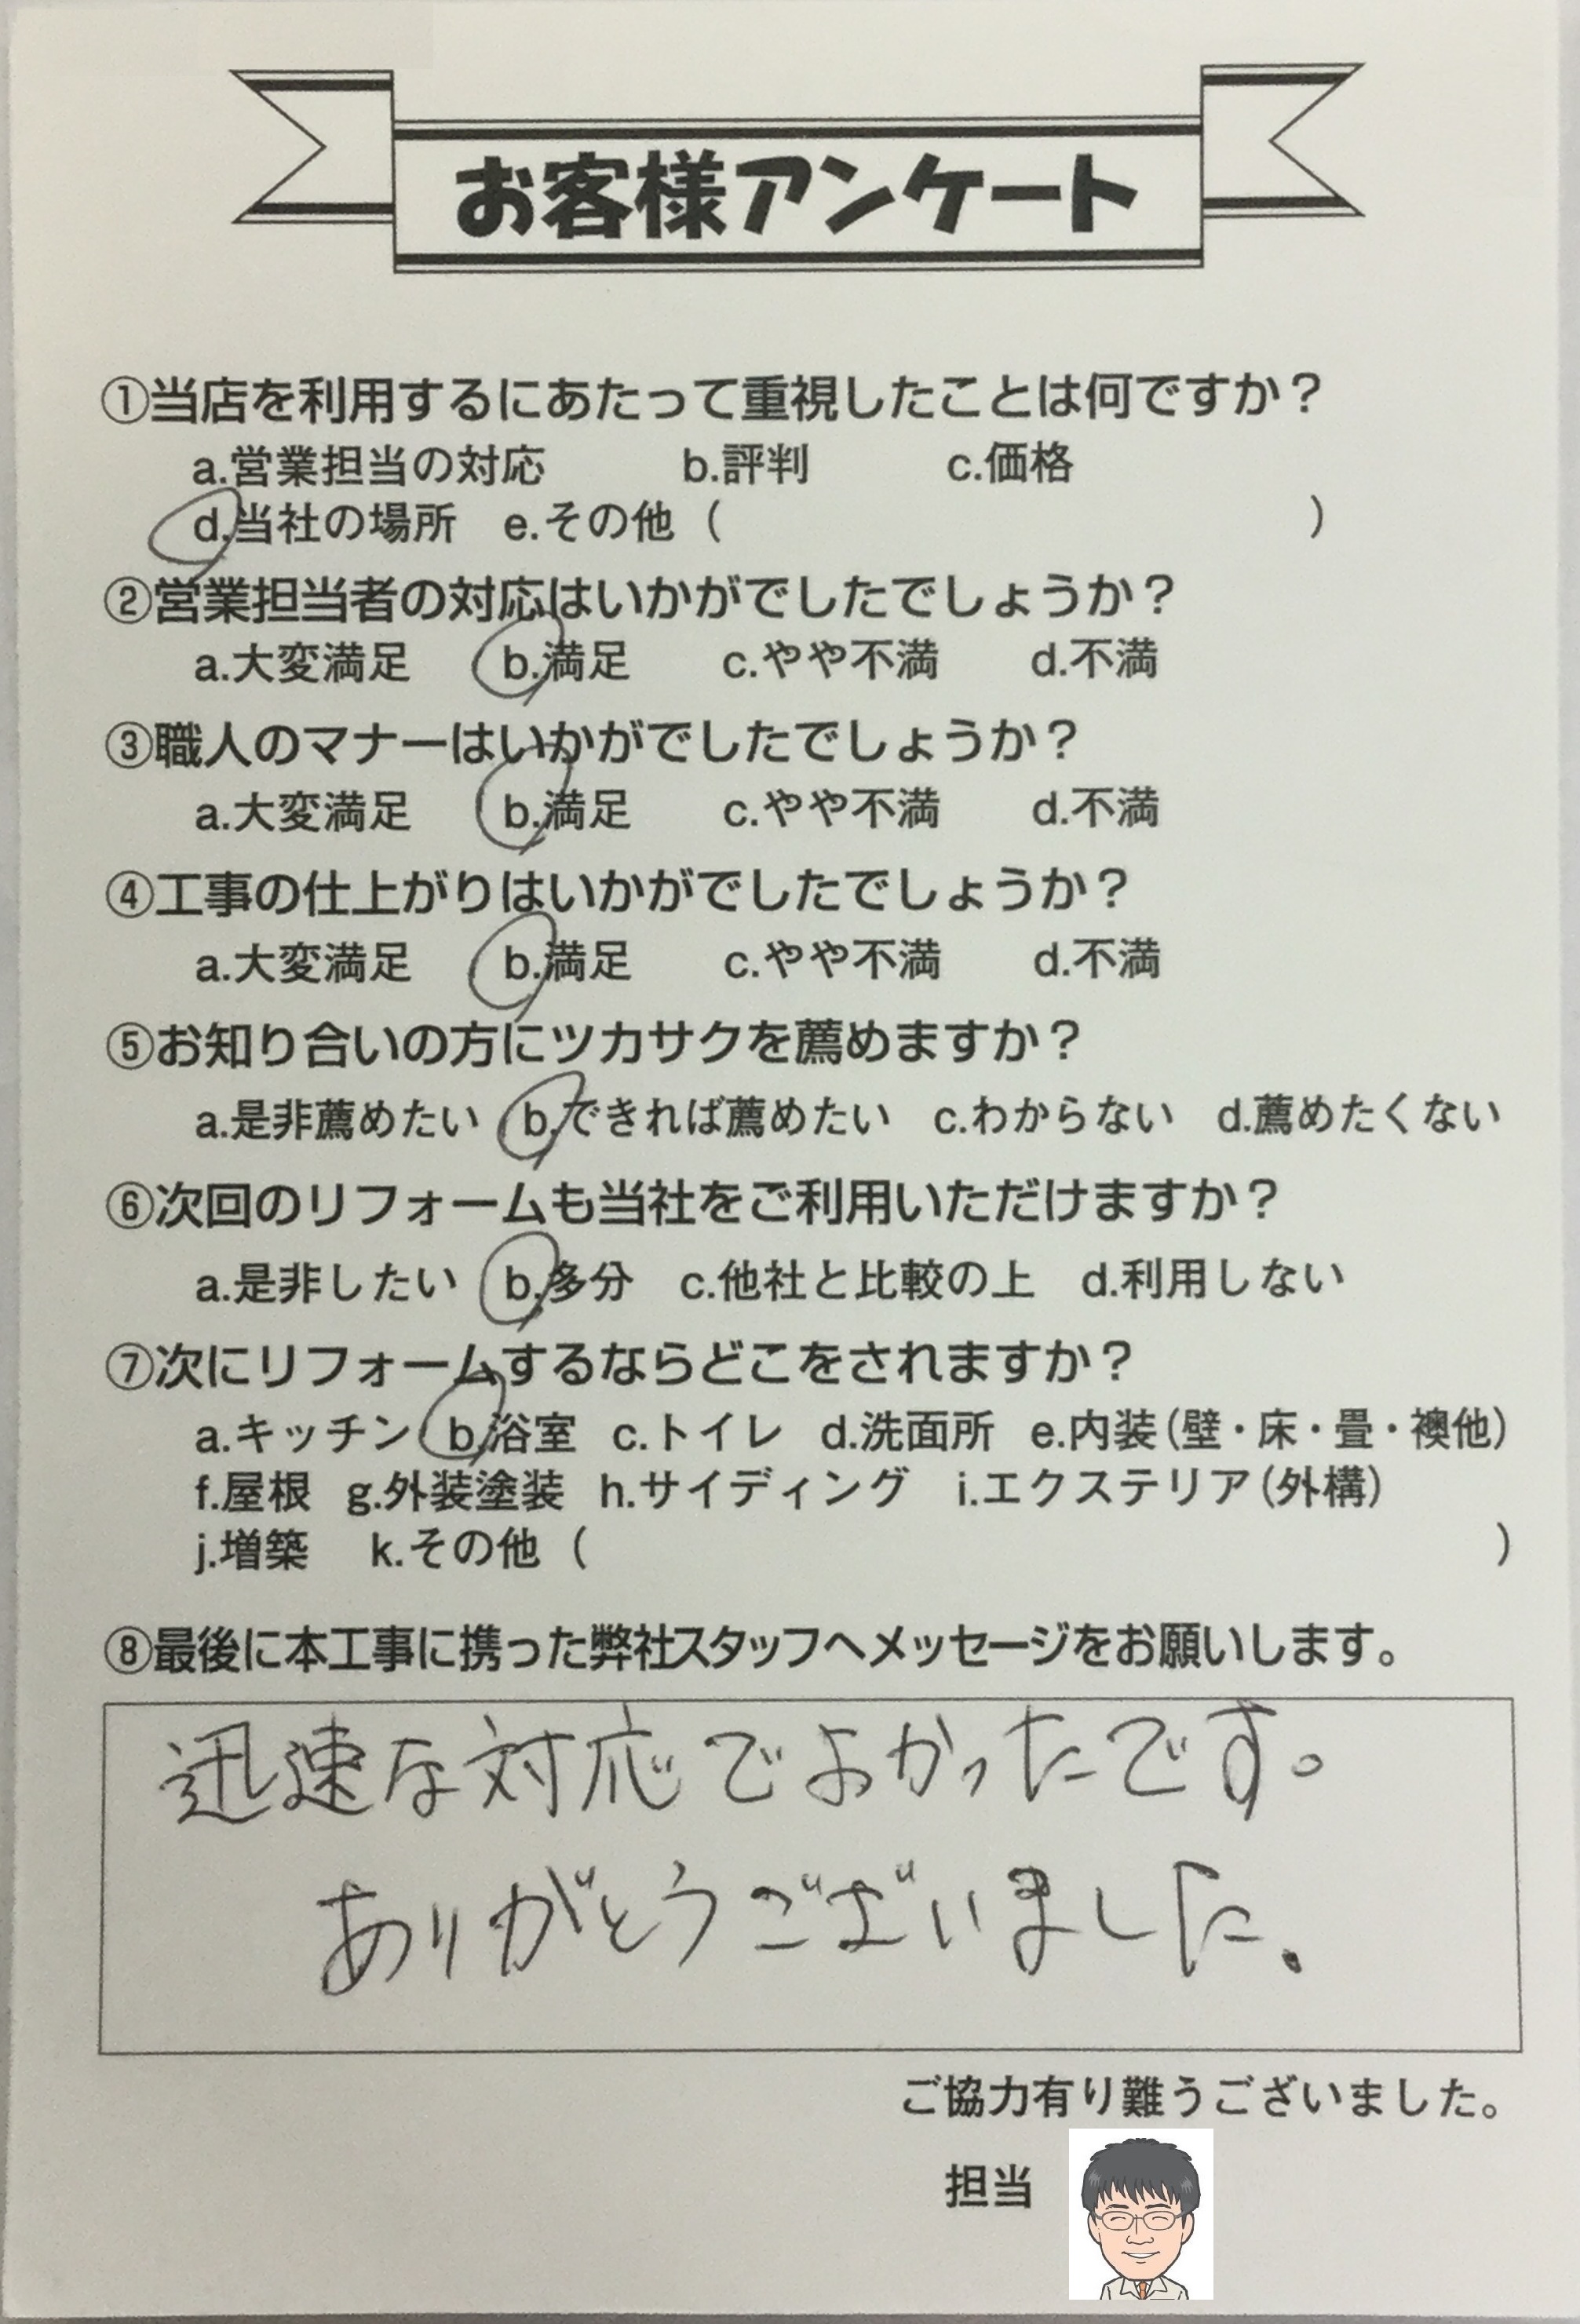 お客様アンケート
①当店を利用するにあたって重視したことは何ですか？
a.営業担当の対応　b.評判　c.価格
d.当社の場所　e.その他（　）
②営業担当者の対応はいかがでしたでしょうか？
a.大変満足　b.満足　c.やや不満　d.不満
③職人のマナーはいかがでしたでしょうか？
a.大変満足　b.満足　c.やや不満　d.不満
④工事の仕上がりはいかがでしたでしょうか？
a.大変満足　b.満足　c.やや不満　d.不満
⑤お知り合いの方にツカサクを薦めますか？
a.是非薦めたい　b.できれば薦めたい　c.わからない　d.薦めたくない
⑥次回のリフォームも当社をご利用いただけますか？
a.是非したい　b.多分　c.他社と比較の上　d.利用しない
⑦次にリフォームするならどこをされますか？
a.キッチン　b.浴室　c.トイレ　d.洗面所　e.内装（壁・床・畳・襖他）
f.屋根　g.外装塗装　h.サイディング　i.エクステリア（外構）
j.増築　k.その他（　）
⑧最後に本工事に携った弊社スタッフへメッセージをお願いします。
迅速な対応でよかったです。
ありがとうございました。
ご協力有り難うございました。
担当